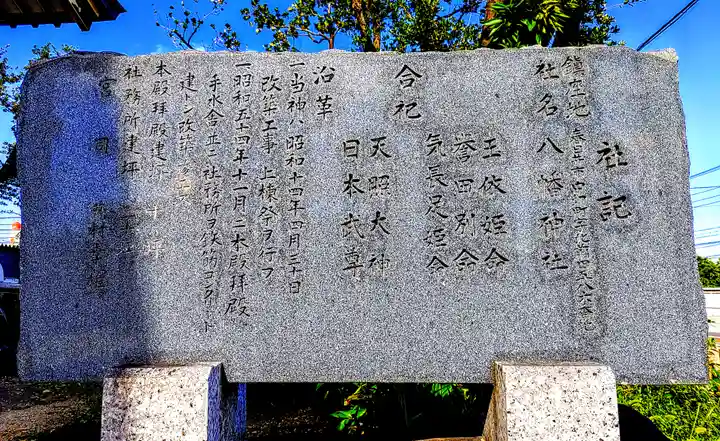 社記
鎮座地 春日井市
社名 八幡神社
玉依姫命
誉田別命
気長足姫命
合祀
天照大神
日本武尊
沿革
一当神ハ昭和十四年四月三十日
改築工事上棟祭ヲ行フ
一昭和五十四年十一月ニ本殿拝殿、
手水舎並ニ社務所ヲ鉄筋コンクリート
建トシ改築
本殿拝殿建坪
社務所建坪
宮司